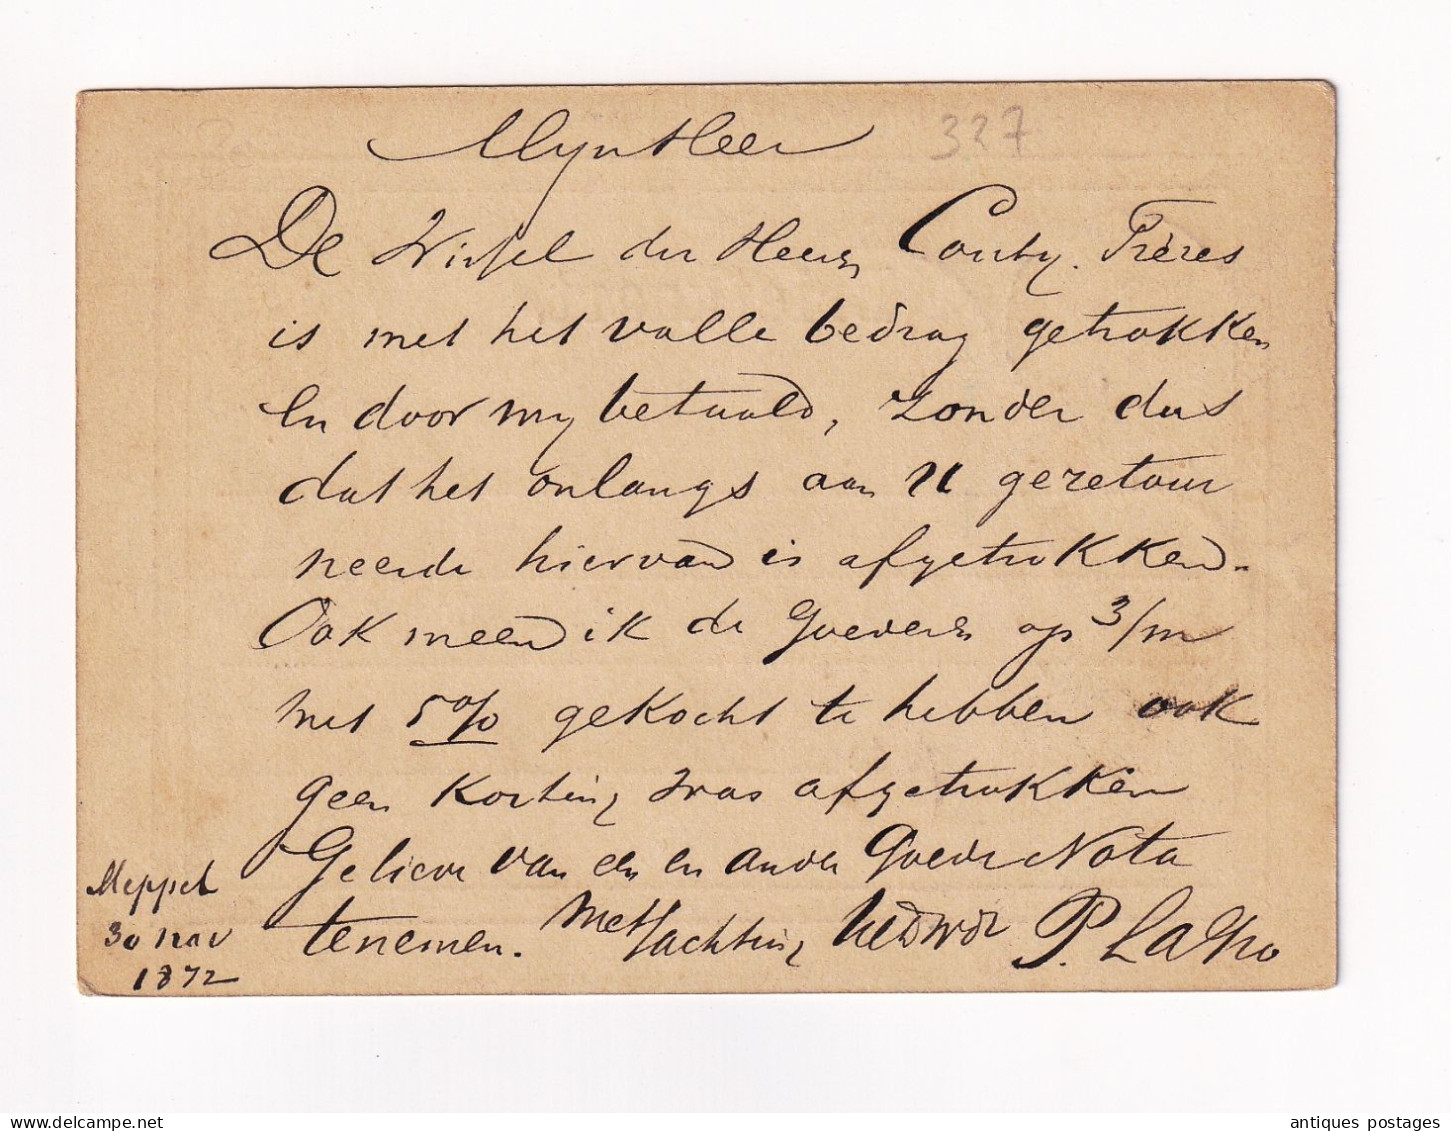 Mynheer
327
De Wissel der Heeren Couty Frères
is met het volle bedrag getrokken
en door my betaald, zonder dus
dat het onlangs aan U geretour
neerde hiervan is afgetrokken.
Ook meen ik de Goederen op 3/m
met 5% gekocht te hebben ook
geen Korting was afgetrokken
Gelieve van een en ander Goede Nota
tenemen. Met achting UEdwdr P.
Meppel
30 nov
1872
antiques postages